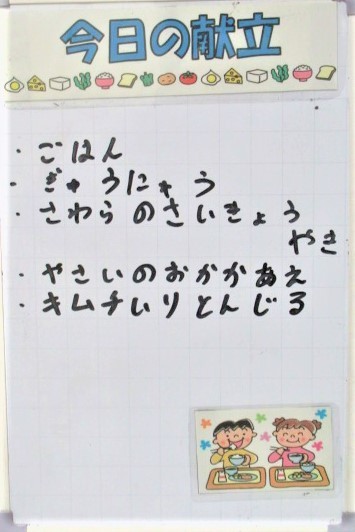 今日の献立
・ごはん
・ぎゅうにゅう
・さわらのさいきょう
やき
・やさいのおかかあえ
・キムチいりとんじる